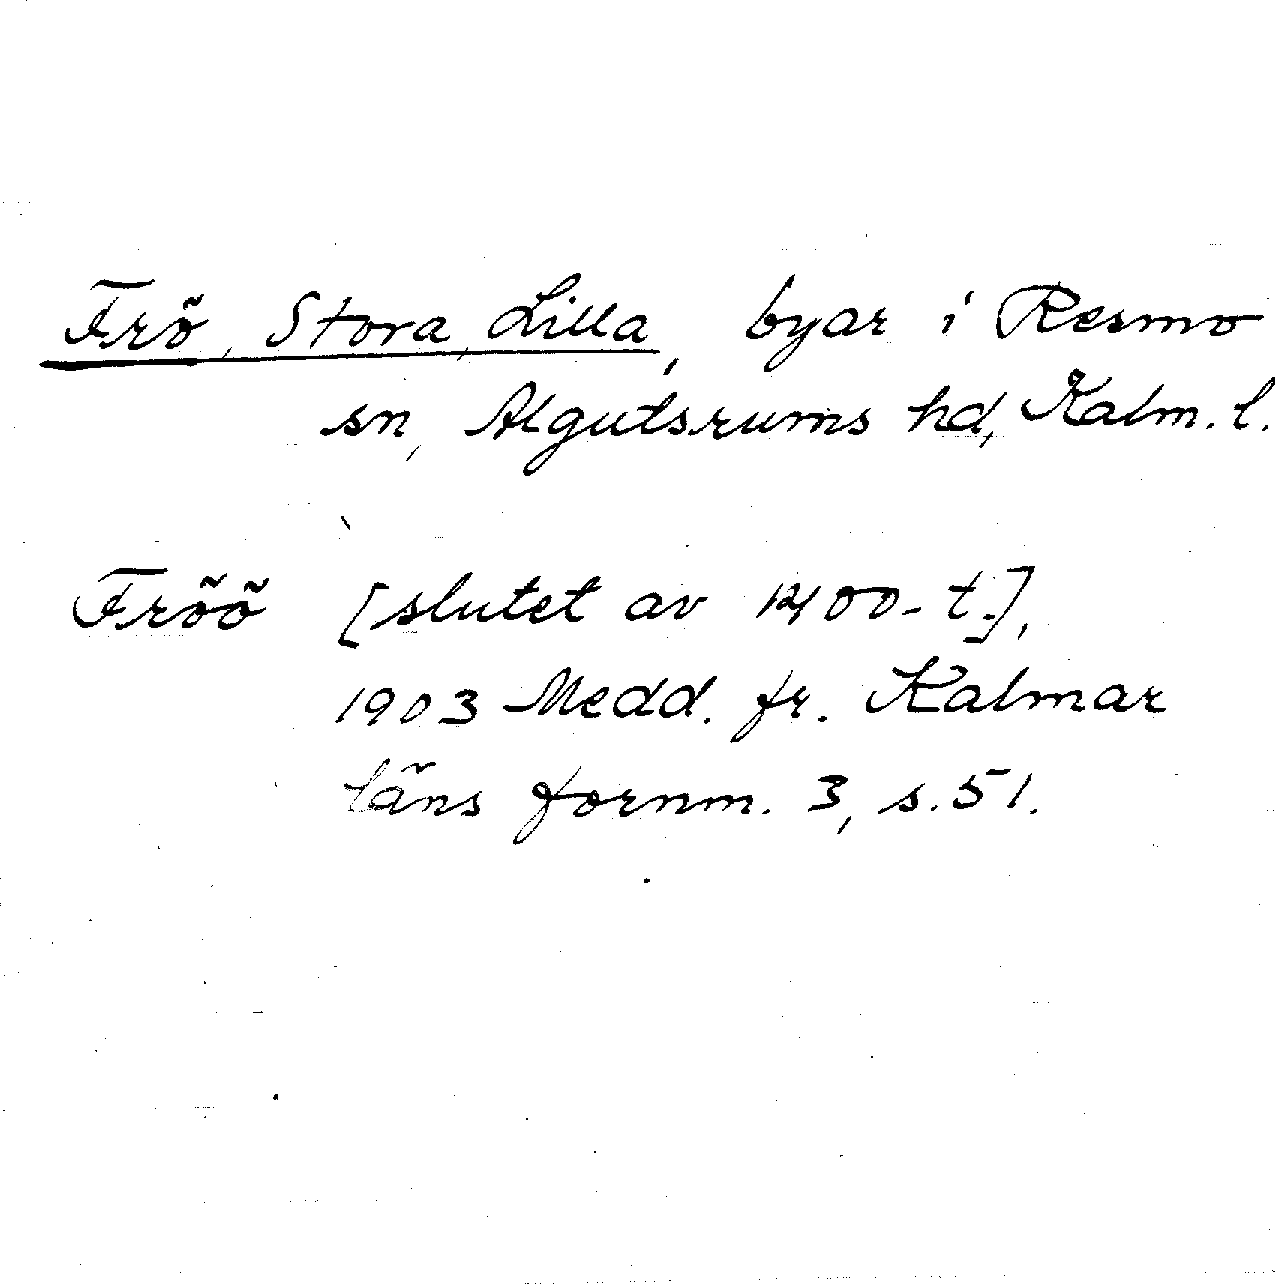 Frö, Stora, Lilla, byar i Resmo
sn, Algutsrums hd, Kalm. l.
Fröö [slutet av 1400-t.],
1903 Medd. fr. Kalmar
läns fornm. 3, s. 51.